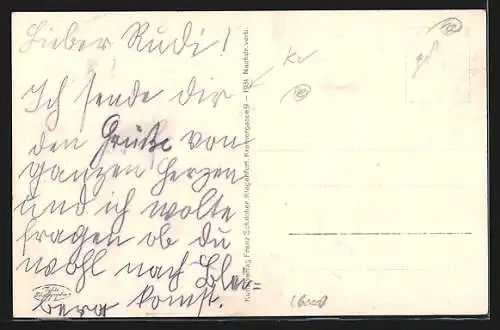 Lieber Rudi!
Ich sende dir
den Grüße vom
ganzen Herzen
und ich wolte
fragen ob du
wohl nach Blei=
berg komst.
Kunstverlag Franz Schilcher, Klagenfurt, Kramergasse 9 – 1931. Nachdr. verb.